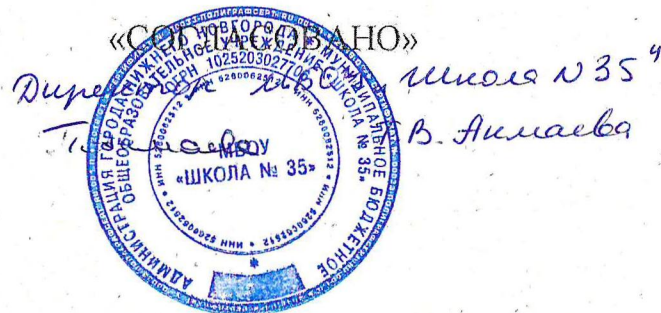 «СОГЛАСОВАНО»
Директор МБОУ „Школа N 35"
В. Акмаева
АДМИНИСТРАЦИЯ ГОРОДА НИЖНЕГО НОВГОРОДА МУНИЦИПАЛЬНОЕ БЮДЖЕТНОЕ
ОБЩЕОБРАЗОВАТЕЛЬНОЕ УЧРЕЖДЕНИЕ «ШКОЛА № 35»
ОГРН
ИНН 5260062512
МБОУ
«ШКОЛА № 35»